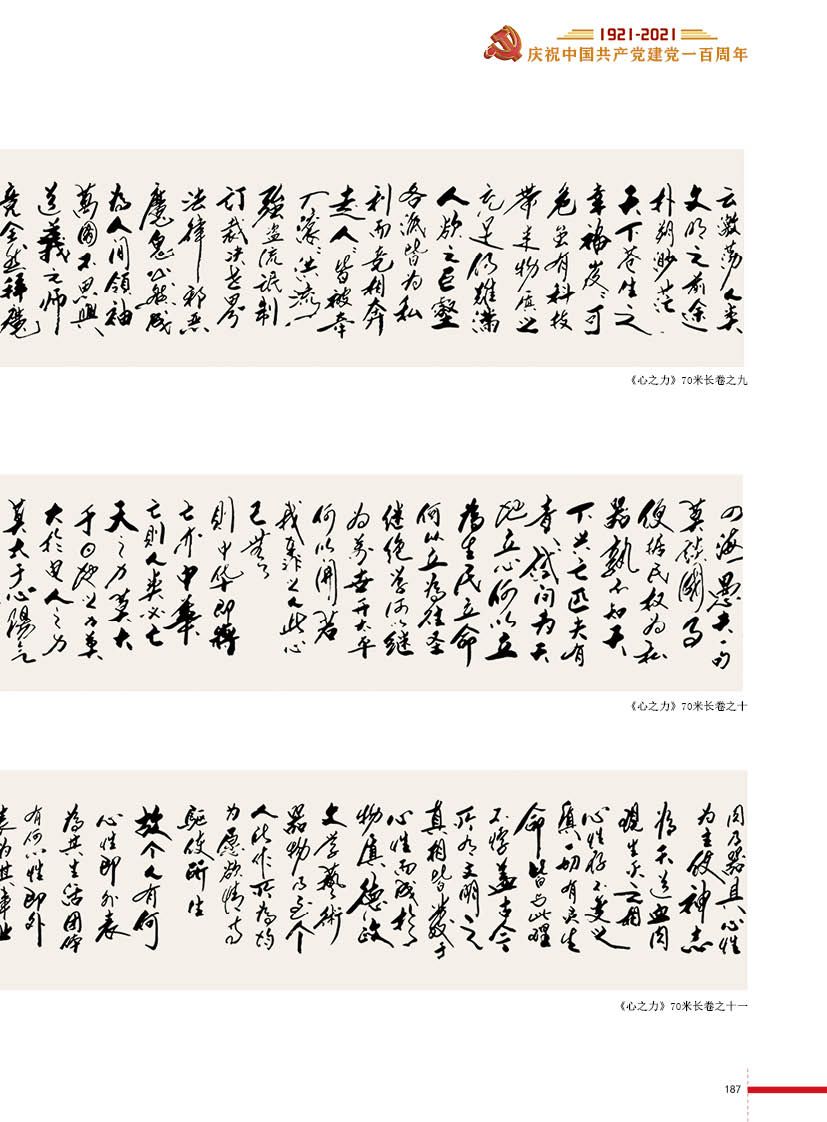 1921-2021
庆祝中国共产党建党一百周年
云激荡人类
文明之前途
朴朔渺茫
天下苍生之
幸福岌岌可
危虽有科技
带来物质之
充足仍难满
人欲之巨壑
各派皆为私
利而竞相奔
走人人皆被牵
滚洪流
強盗流氓制
订裁决世界
法律邪恶
魔鬼公然成
為人间領袖
萬國不思興
道義之师
竟全然拜魔
《心之力》70米长卷之九
四海愚夫一句
莫談國事
便 民权为私
器孰不知天
下兴亡匹夫有
责试问为天
地立心何以立
為生民立命
何以立為往圣
继绝学何以继
为萬世开太平
何以開若
我 之此心
已無
則中华即將
亡亦中華
亡則人类必亡
天之力莫大
于日地之力莫
大於电人之力
莫大于心陽气
《心之力》70米长卷之十
肉乃器具心性
为主使神志
為天道血肉
現生灭之相
心性存不变之
质一切有灵生
命皆与此理
不悖盖古今
所有文明之
真相皆發于
心性而成於
物质德政
文学藝術
器物乃至个
人所作所為均
为愿欲情等
驱使所生
故个人有何
心性即外表
為其生活团体
有何心性即外
表为其事业
《心之力》70米长卷之十一
187